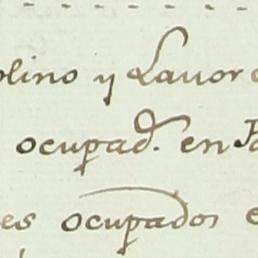 olino y Lavor
ocupad. en
es ocupados e